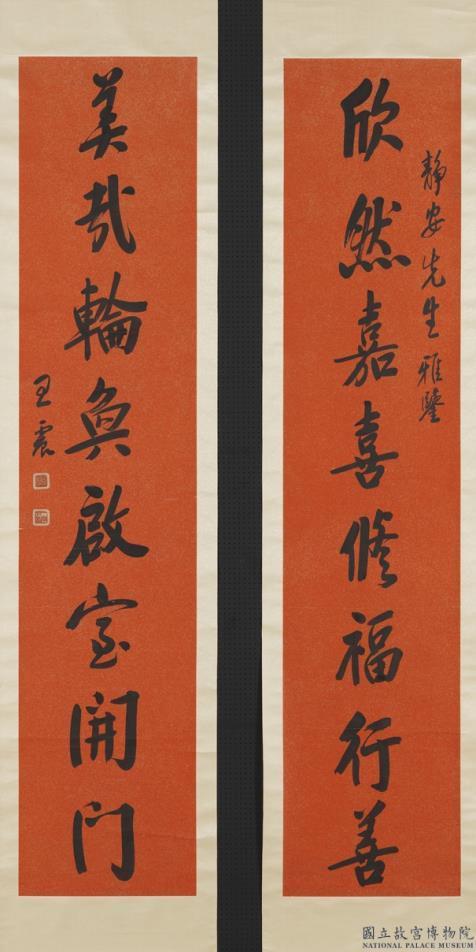 静安先生雅鑒
欣然嘉喜脩福行善
美哉輪奐啟室開門
王震
國立故宮博物院
NATIONAL PALACE MUSEUM